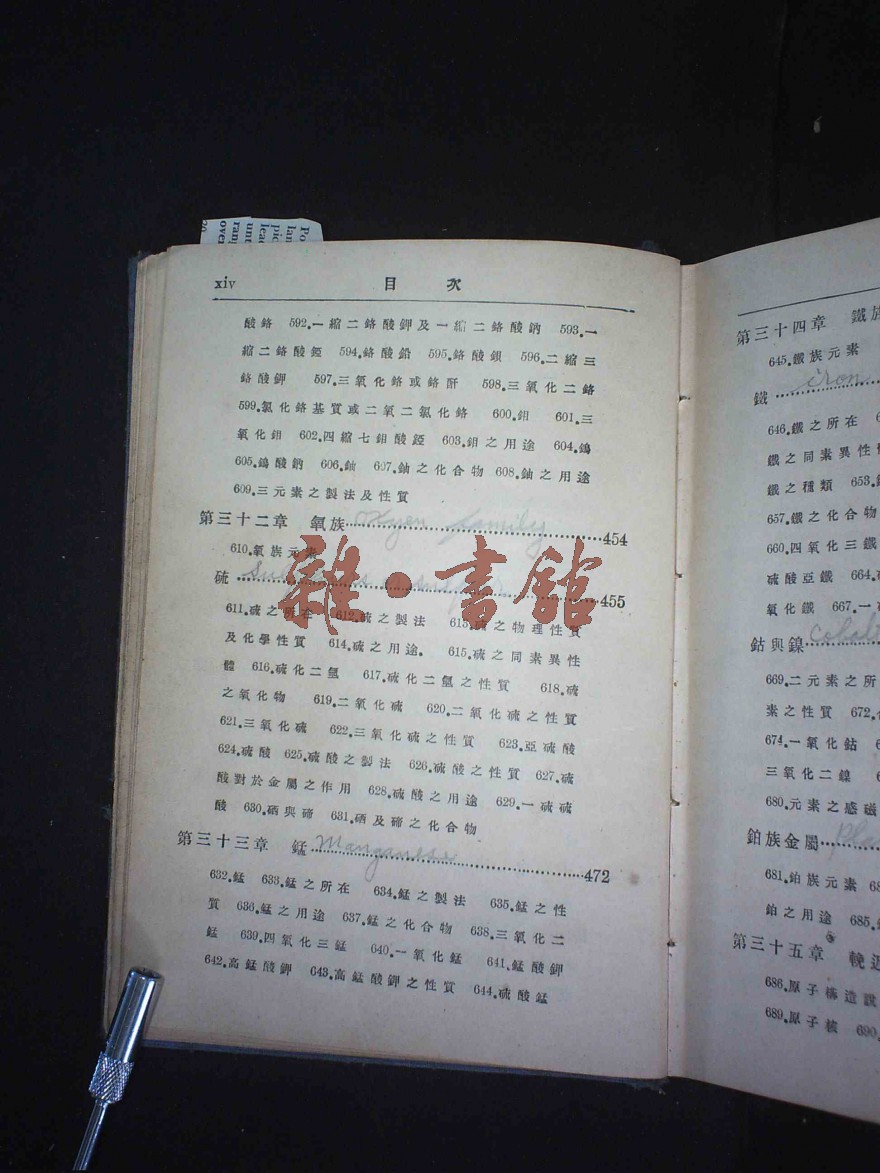 xiv 目次
酸鉻 592.一縮二鉻酸鉀及一縮二鉻酸鈉 593.一
縮二鉻酸銨 594.鉻酸鉛 595.鉻酸鋇 596.二縮三
鉻酸鉀 597.三氧化鉻或鉻酐 598.三氧化二鉻
599.氯化鉻基質或二氧二氯化鉻 600.鉬 601.三
氧化鉬 602.四縮七鉬酸銨 603.鉬之用途 604.鎢
605.鎢酸鈉 606.鈾 607.鈾之化合物 608.鈾之用途
609.三元素之製法及性質
第三十二章 氧族 family 454
610.氧族元素
硫 455
611.硫之所在 612.硫之製法 613.硫之物理性質
及化學性質 614.硫之用途. 615.硫之同素異性
體 616.硫化二氫 617.硫化二氫之性質 618.硫
之氧化物 619.二氧化硫 620.二氧化硫之性質
621.三氧化硫 622.三氧化硫之性質 623.亞硫酸
624.硫酸 625.硫酸之製法 626.硫酸之性質 627.硫
酸對於金屬之作用 628.硫酸之用途 629.一硫硫
酸 630.硒與碲 631.硒及碲之化合物
第三十三章 錳 Manganese 472
632.錳 633.錳之所在 634.錳之製法 635.錳之性
質 636.錳之用途 637.錳之化合物 638.三氧化二
錳 639.四氧化三錳 640.一氧化錳 641.錳酸鉀
642.高錳酸鉀 643.高錳酸鉀之性質 644.硫酸錳
雜·書館
第三十四章 鐵族
645.鐵族元素
鐵 iron
646.鐵之所在
鐵之同素異性
鐵之種類 653.
657.鐵之化合物
660.四氧化三鐵
硫酸亞鐵 664.
氧化鐵 667.一
鈷與鎳 Cobalt
669.二元素之所
素之性質 672.
674.一氧化鈷
三氧化二鎳
680.元素之感磁
鉑族金屬
681.鉑族元素
鉑之用途 685.
第三十五章 輓近
686.原子構造說
689.原子核 690.